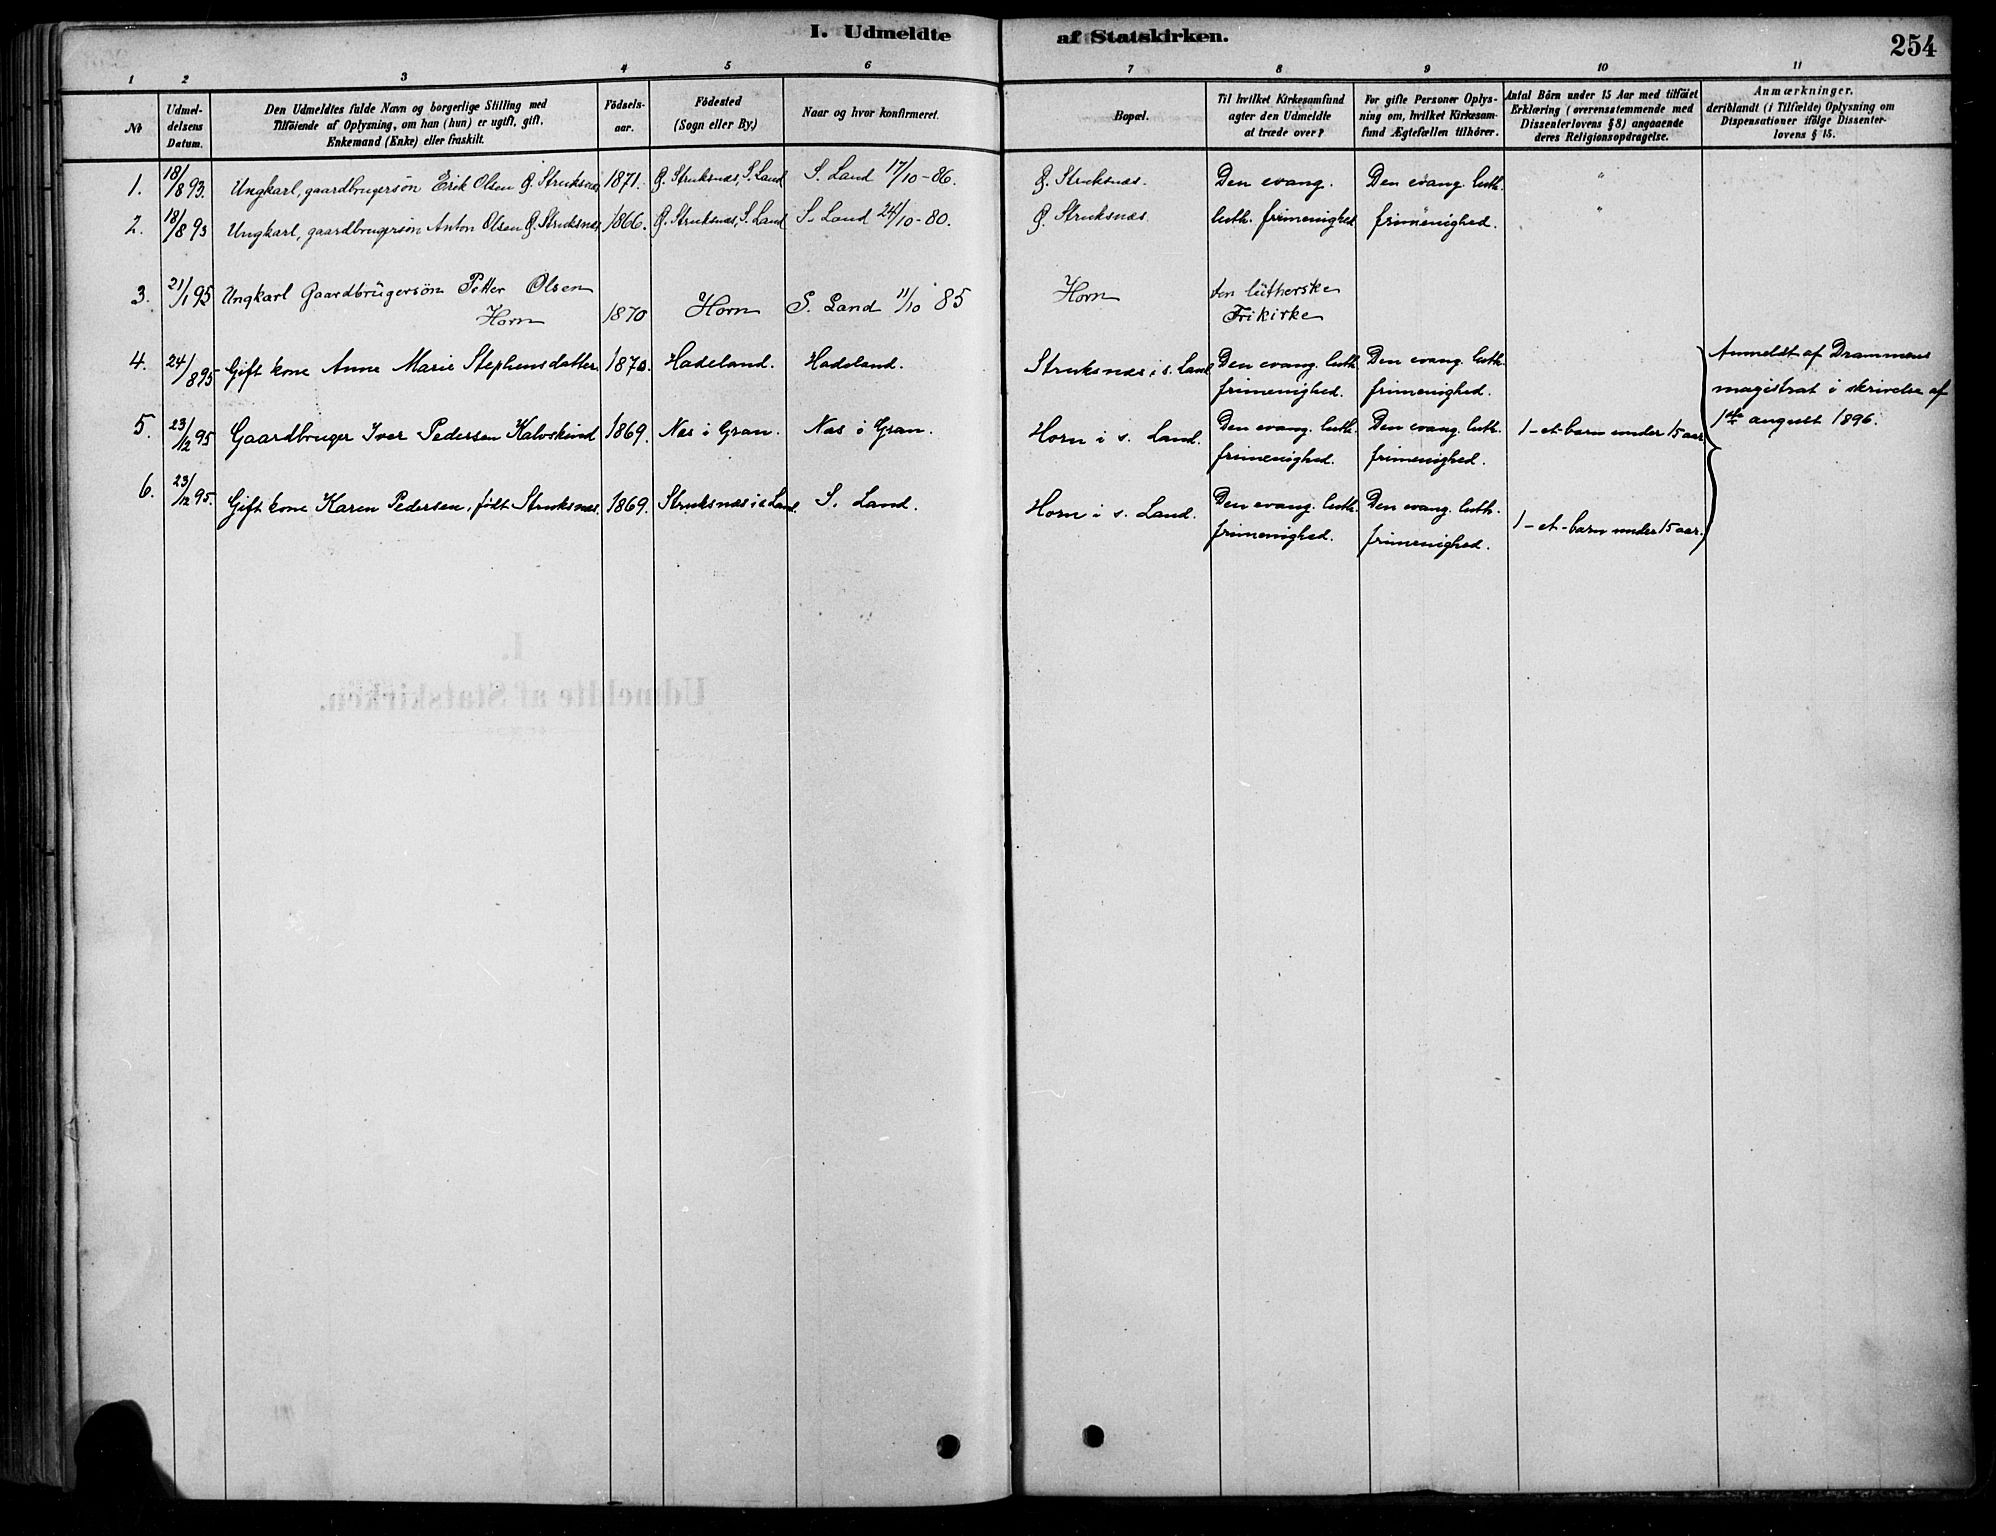 I. Udmeldte af Statskirken.
254
1 2 3 4 5 6 7 8 9 10 11
No
Udmel-
delsens
Datum.
Den Udmeldtes fulde Navn og borgerlige Stilling med
Tilføiende af Oplysning, om han (hun) er ugift, gift,
Enkemand (Enke) eller fraskilt.
Fødsels-
aar.
Fødested
(Sogn eller By.)
Naar og hvor konfirmeret.
Bopæl.
Til hvilket Kirkesamfund
agter den Udmeldte
at træde over?
For gifte Personer Oplys-
ning om, hvilket Kirkesam-
fund Ægtefællen tilhører.
Antal Børn under 15 Aar med tilføiet
Erklæring (overensstemmende med
Dissenterlovens § 8) angaaende
deres Religionsopdragelse.
Anmærkninger,
deriblandt (i Tilfælde) Oplysning om
Dispensationer ifølge Dissenter-
lovens § 15.
1. 18/8 93. Ungkarl, gaardbrugersøn Erik Olsen Ø. Struksnæs 1871. Ø. Struksnæs, S. Land S. Land 17/10-86. Ø. Struksnæs. Den evang. Den evang. luth. "
2. 18/8 93 Ungkarl, gaardbrugersøn Anton Olsen Ø. Struksnæs 1866. Ø. Struksnæs, S. Land S. Land 24/10-80. Ø. Struksnæs. luth. frimenighed frimenighed. "
3. 21/1 95 Ungkarl Gaardbrugersøn Petter Olsen
Horn 1870 Horn S. Land 11/10 85 Horn den lutherske
Frikirke
4. 24/8 95 Gift kone Anne Marie Stephensdatter 1870. Hadeland. Hadeland. Struksnæs i s. Land Den evang. luth. Den evang. luth.
frimenighed. frimenighed.
5. 23/12 95 Gaardbruger Iver Pedersen Kalvskind 1869. Næs i Gran. Næs i Gran. Horn i s. Land. Den evang. luth. Den evang. luth. 1-et-barn under 15 aar
frimenighed. frimenighed.
6. 23/12 95. Gift kone Karen Pedersen, født Struksnæs. 1869. Struksnæs i s. Land S. Land. Horn i s. Land. Den evang. luth. Den evang. luth. 1-et-barn under 15 aar.
frimenighed. frimenighed.
Anmeldt af Drammens
magistrat i skrivelse af
1ste august 1896.
I.
Udmeldte af Statskirken.